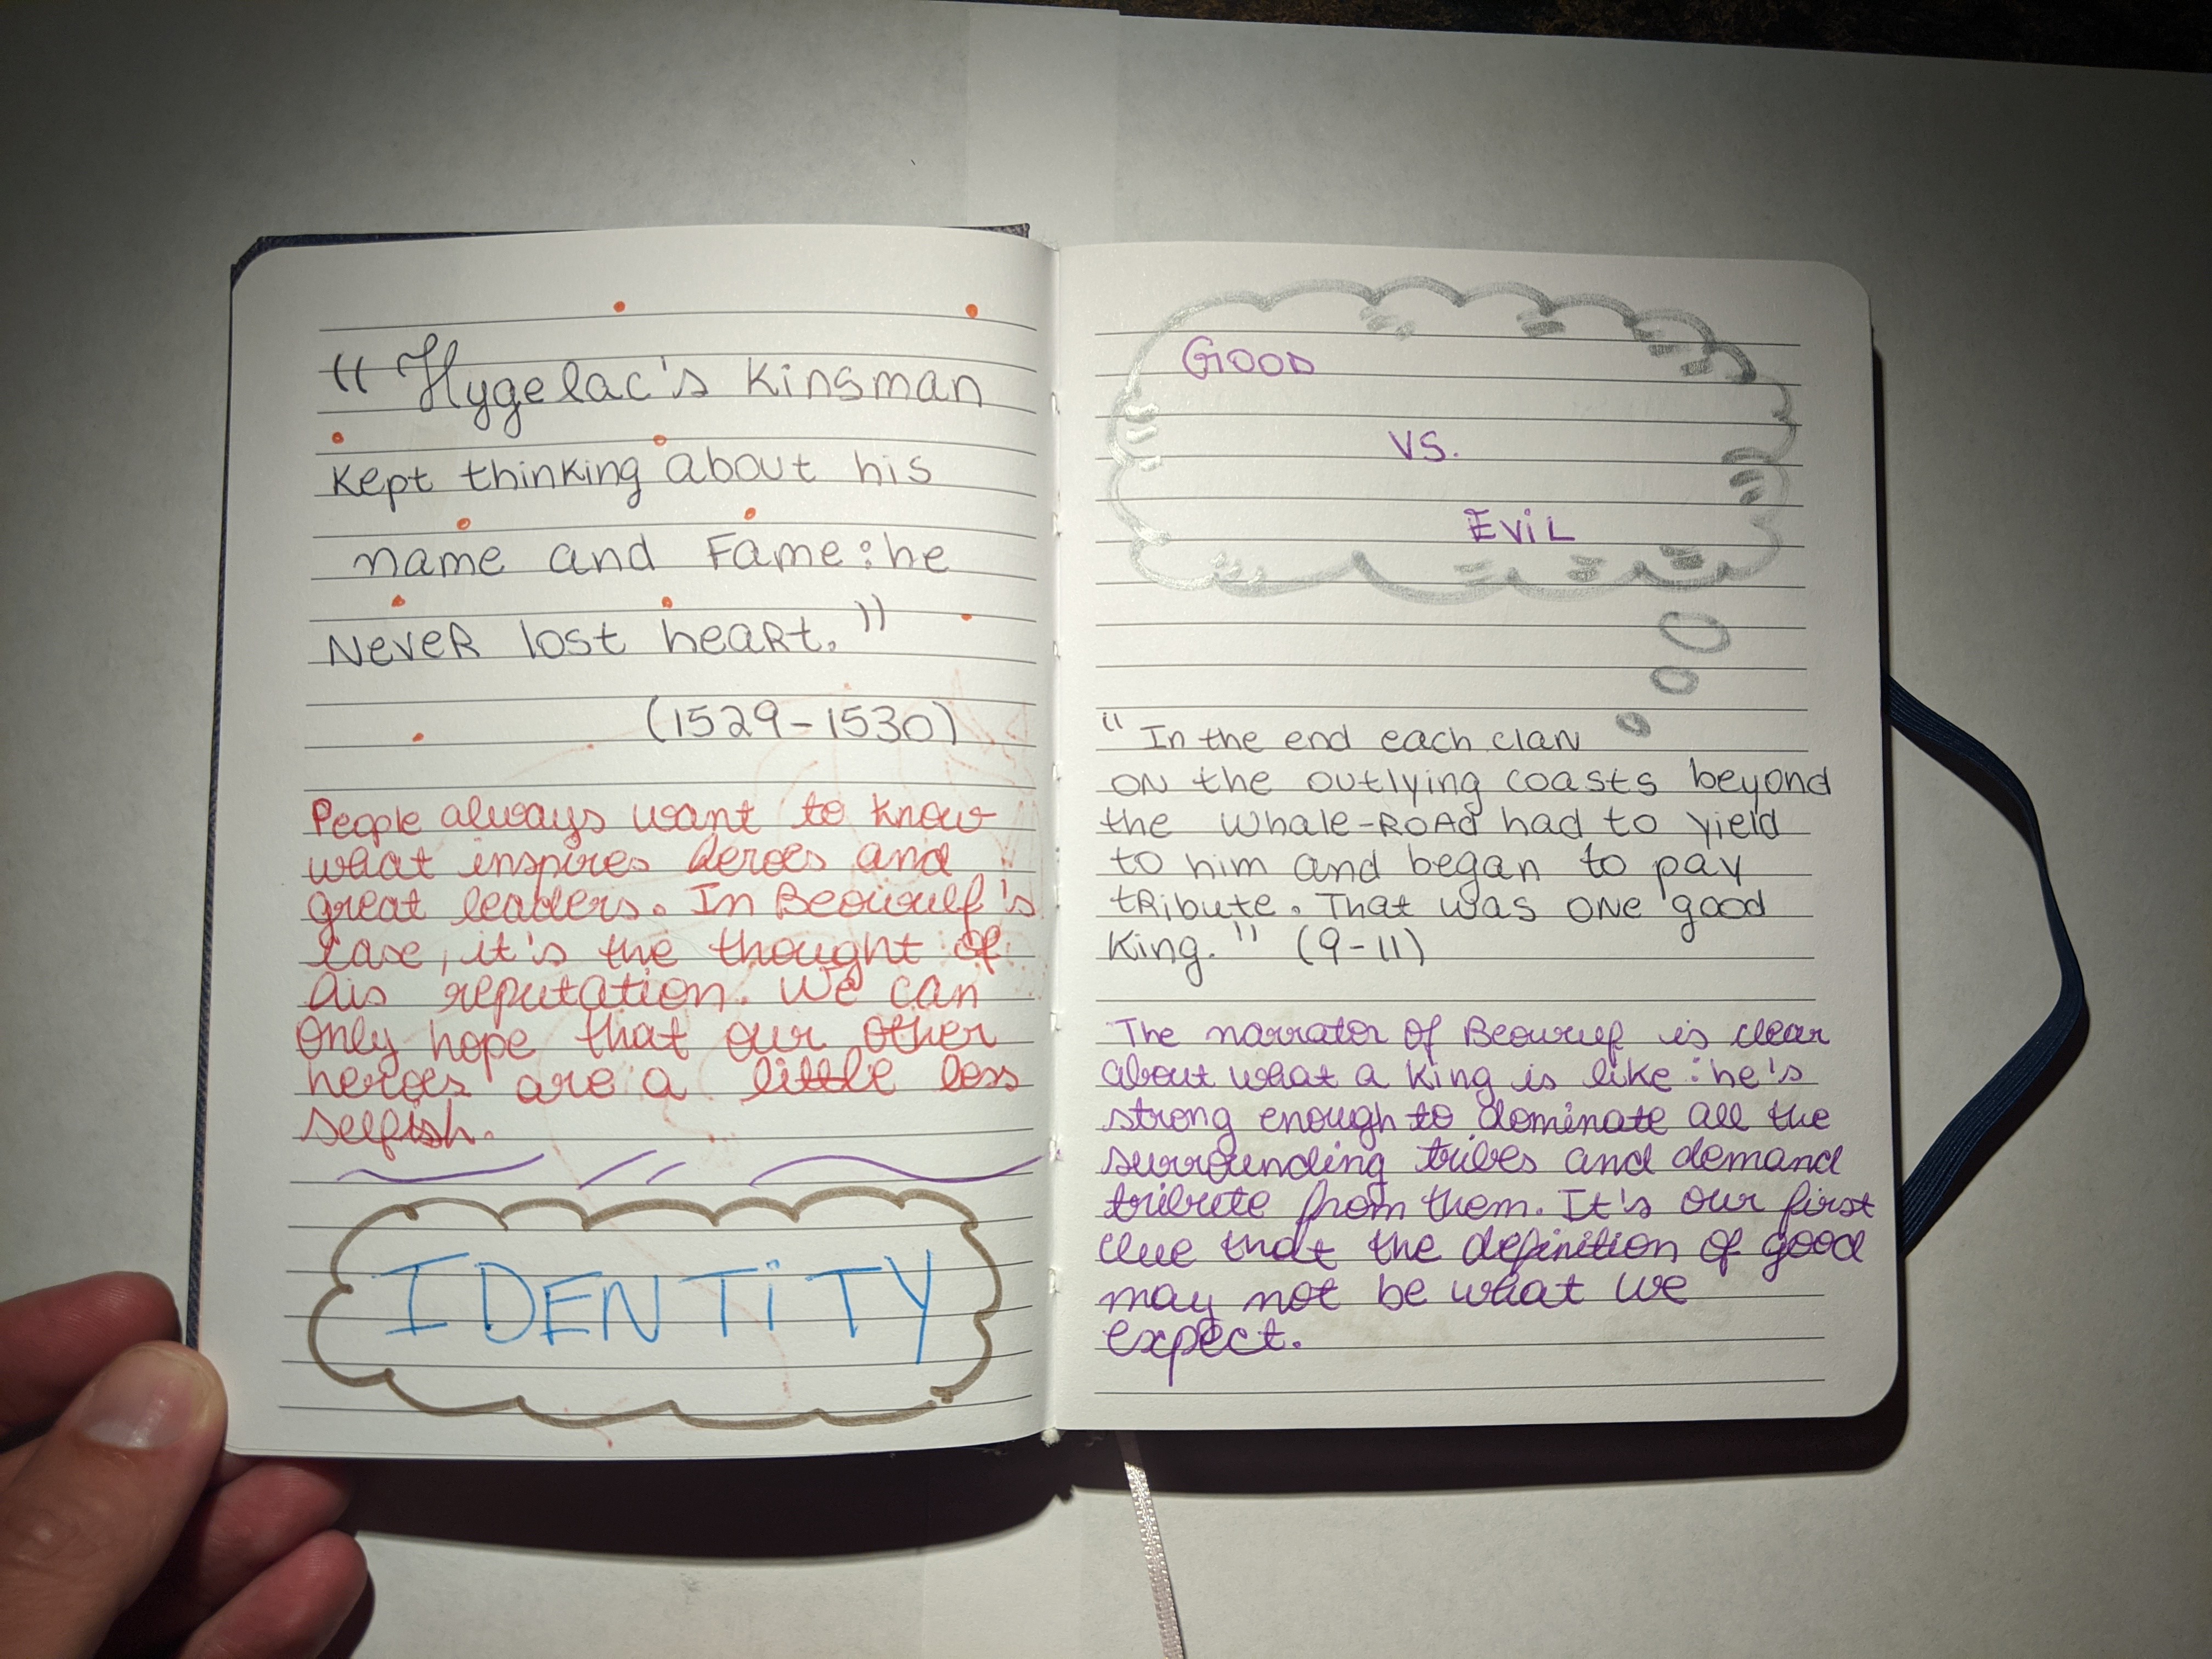 "Hygelac's Kinsman
Kept thinking about his
name and Fame: he
Never lost heart."
(1529-1530)
People always want to know
what inspires heroes and
great leaders. In Beowulf's
case, it's the thought of
his reputation. We can
only hope that our other
heroes are a little less
selfish.
IDENTiTY
GOOD
VS.
EViL
"In the end each clan
on the outlying coasts beyond
the whale-ROAd had to yield
to him and began to pay
tribute. That was one good
King." (9-11)
The narrator of Beowulf is clear
about what a king is like: he's
strong enough to dominate all the
surrounding tribes and demand
tribute from them. It's our first
clue that the definition of good
may not be what we
expect.